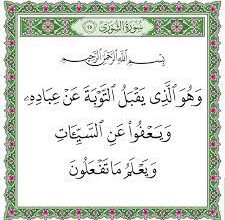 سُورَةُ الشُّورَىٰ
بِسْمِ اللَّهِ الرَّحْمَٰنِ الرَّحِيمِ
وَهُوَ الَّذِي يَقْبَلُ التَّوْبَةَ عَنْ عِبَادِهِ
وَيَعْفُوا عَنِ السَّيِّئَاتِ
وَيَعْلَمُ مَا تَفْعَلُونَ